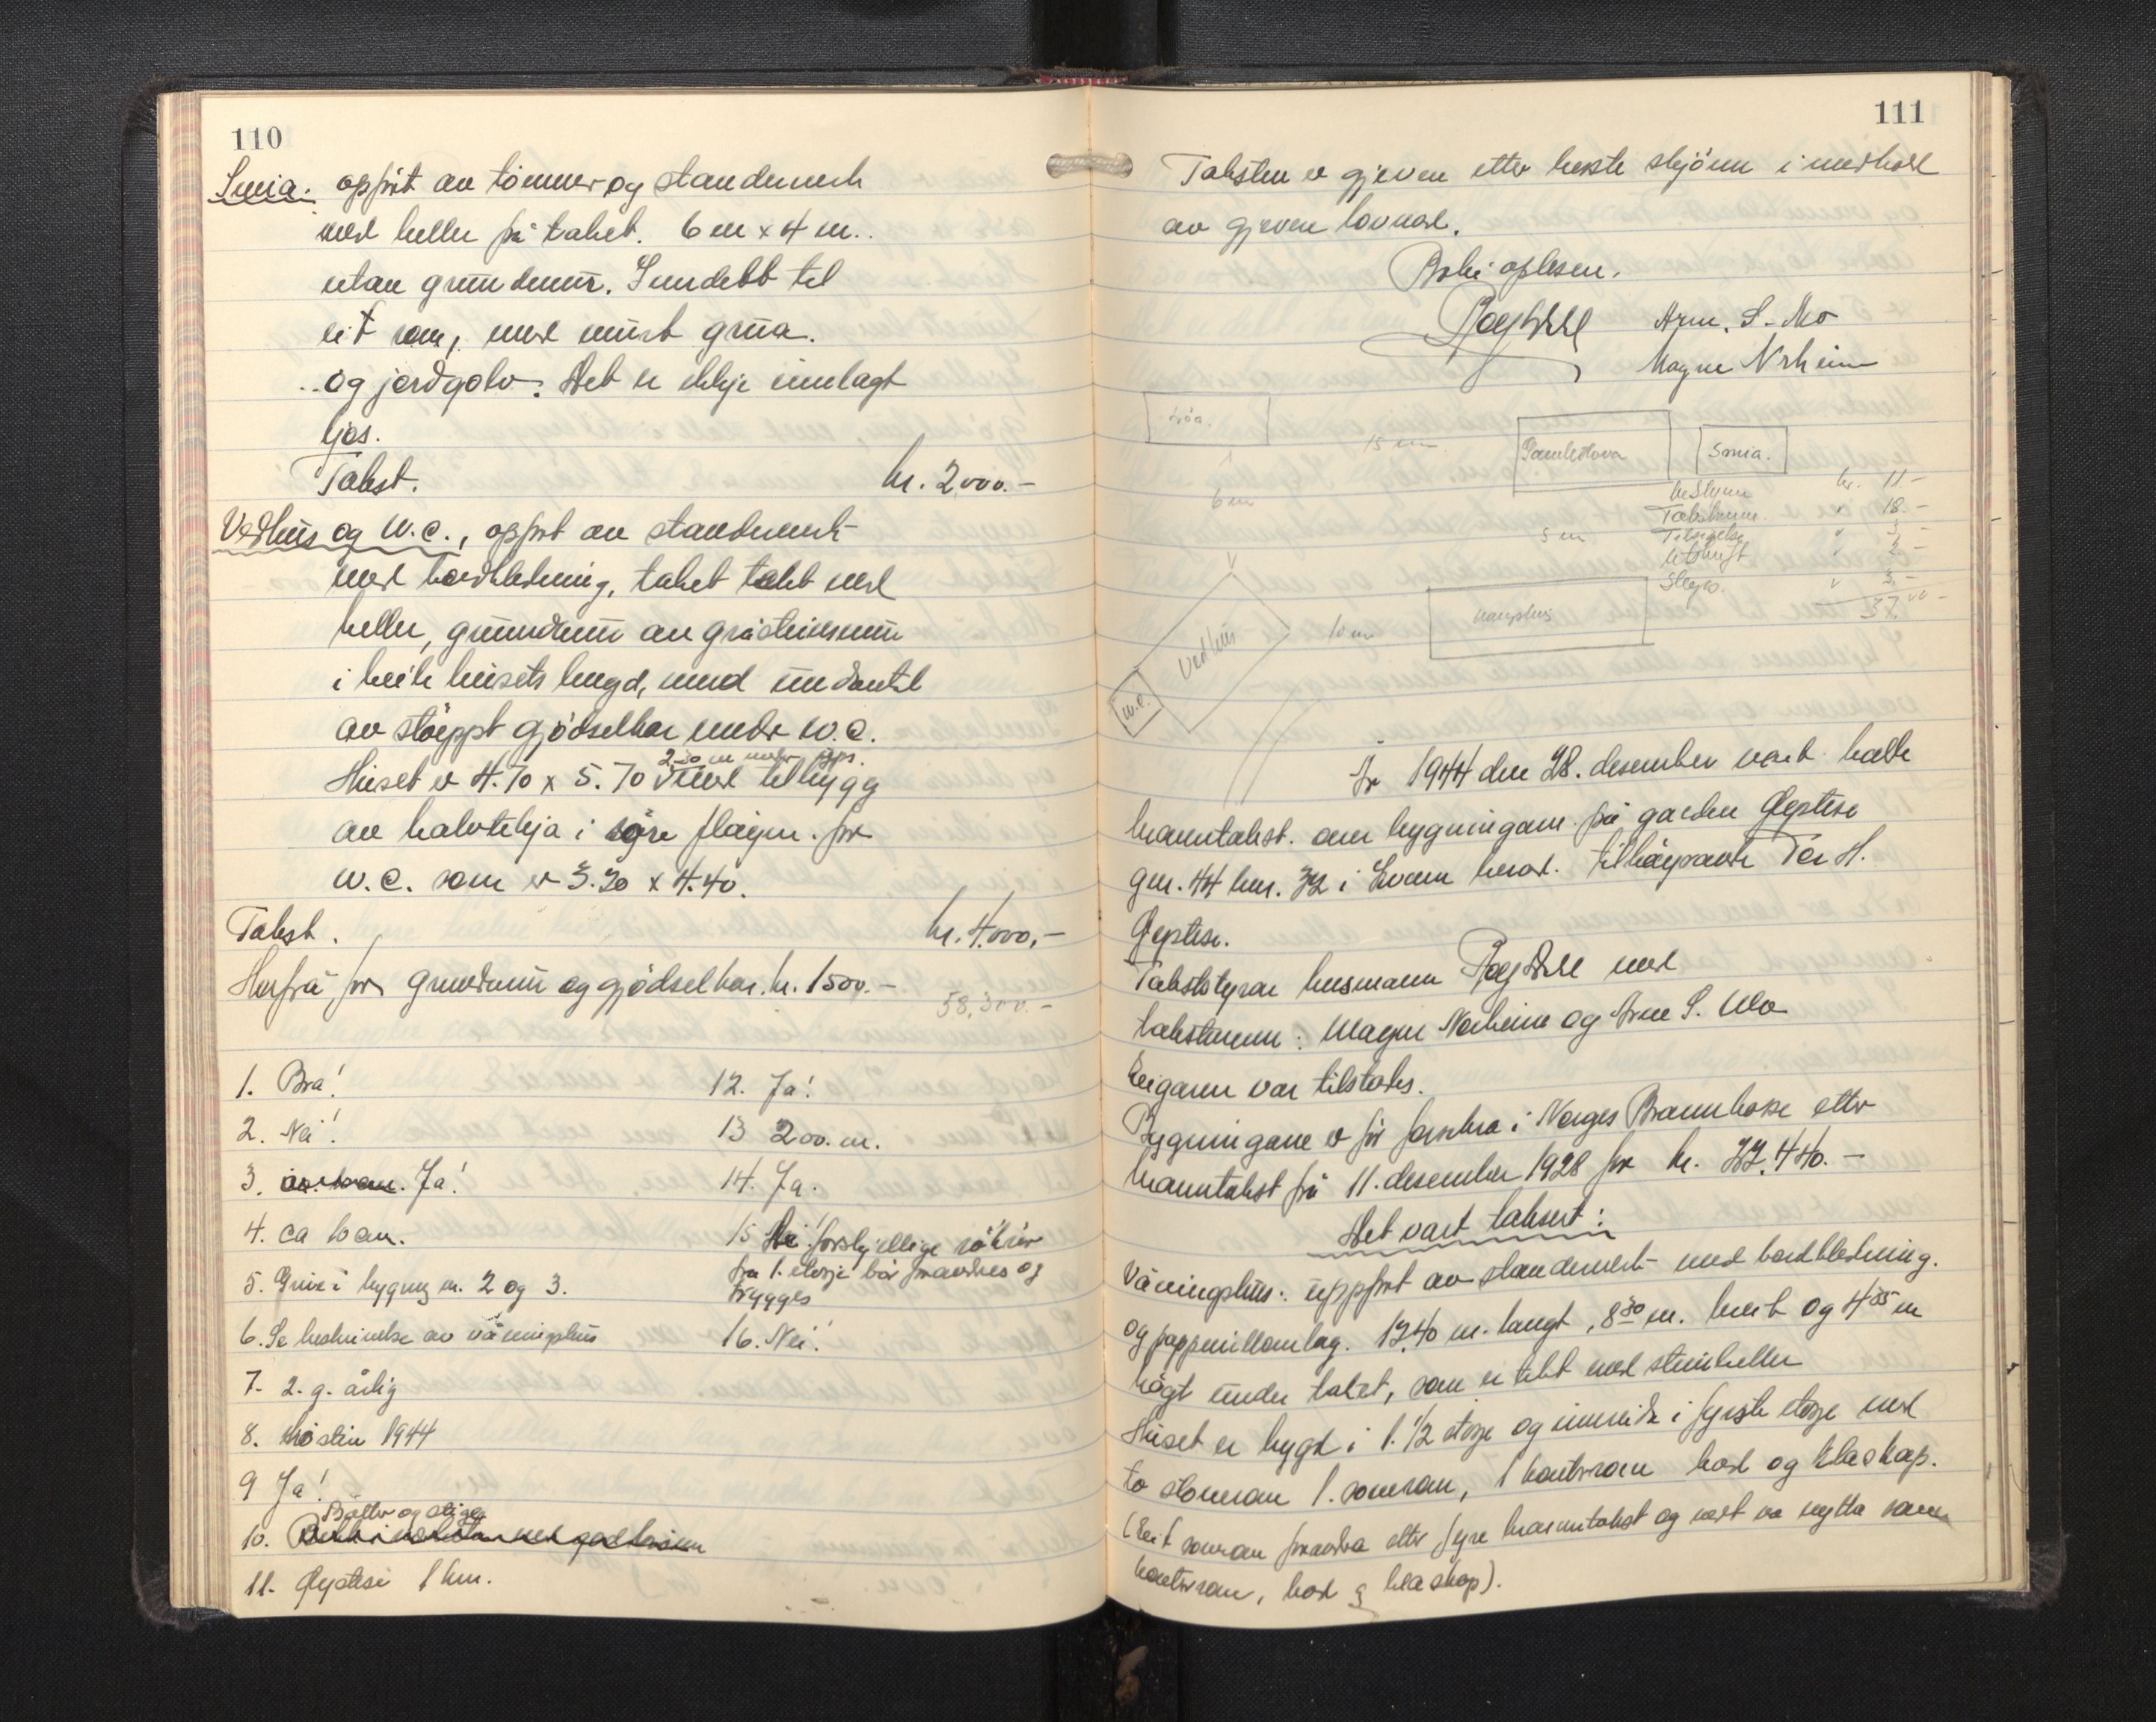 110
Smia. oppført av tömmer og standerverk
med heller på taket. 6 m x 4 m..
utan grunnmur. Inndelt til
eit rom, med murt grua.
og jordgolv. Det er ikkje innlagt
ljos.
Takst. kr. 2000.-
Vedhus og W.C., oppført av standerverk
med bordkledning, taket tekt med
heller, grunnmur av gråsteinsmur
i heile husets lengd, med unntak
av stöyppt gjödselkar under W.C.
Huset er 4.70 x 5.70 med tilbygg
2.30 m under gps.
av halvtekja i søre flågen. for
W.C. som er 3.30 x 4.40.
Takst. kr. 4.000,-
Herfrå for grunnmur og gjödselkar. kr. 1500.-
58,300.-
1. Bra!
2. Nei!
3. Ja!
4. ca 60 cm.
5. Grue i bygning nr. 2 og 3.
6. Se beskrivelse av våningshus
7. 2. g. årlig
8. Hösten 1944
9 Ja!
Bötter og stiger
10.
11. Öystese 1 km.
12. Ja!
13 200. m.
14. Ja.
15 Nei! forskjellige
fra 1. etasje bör forandres og
trygges
16. Nei!
111
Taksten er gjeven etter beste skjönn i medhold
av gjeven lovnad.
Boki opplesen.
Arne. S. Mo
Magne Norheim
Löa.
15 m
6 m
Smia.
5 m
Vedhus
W.C.
10 m
våningshus
kr. 11.-
Takstmenn. " 18.-
Utskrift " 2-
" 3.-
37.00-
År 1944 den 28. desember vart halde
branntakst. over bygningane på garden Öystese
gnr. 44 bnr. 32 i Kvam herad. tilhöyrande Tor H.
Öystese.
Takststyrar lensmann med
takstmenn: Magne Norheim og Arne S. Mo
Eigaren var tilstades.
Bygningane er för forsikra i Norges Brannkasse etter
branntakst frå 11. desember 1928 for kr. 22.440.-
Det vart taksert:
Våningshus: uppført av standerverk med bordkledning.
og pappmillomlag. 12.40 m. langt, 8.30 m. breit og 4.35 m
högt under taket, som er tekt med steinheller
Huset er bygd i 1. 1/2 etasje og innreidd i fyrste etasje med
to stoverom 1. soverom, 1 kontorrom bod og kleskap.
(Eit soverom forandra etter fyrre branntakst og vert no nytta som
kontorrom, bod og kleskap).